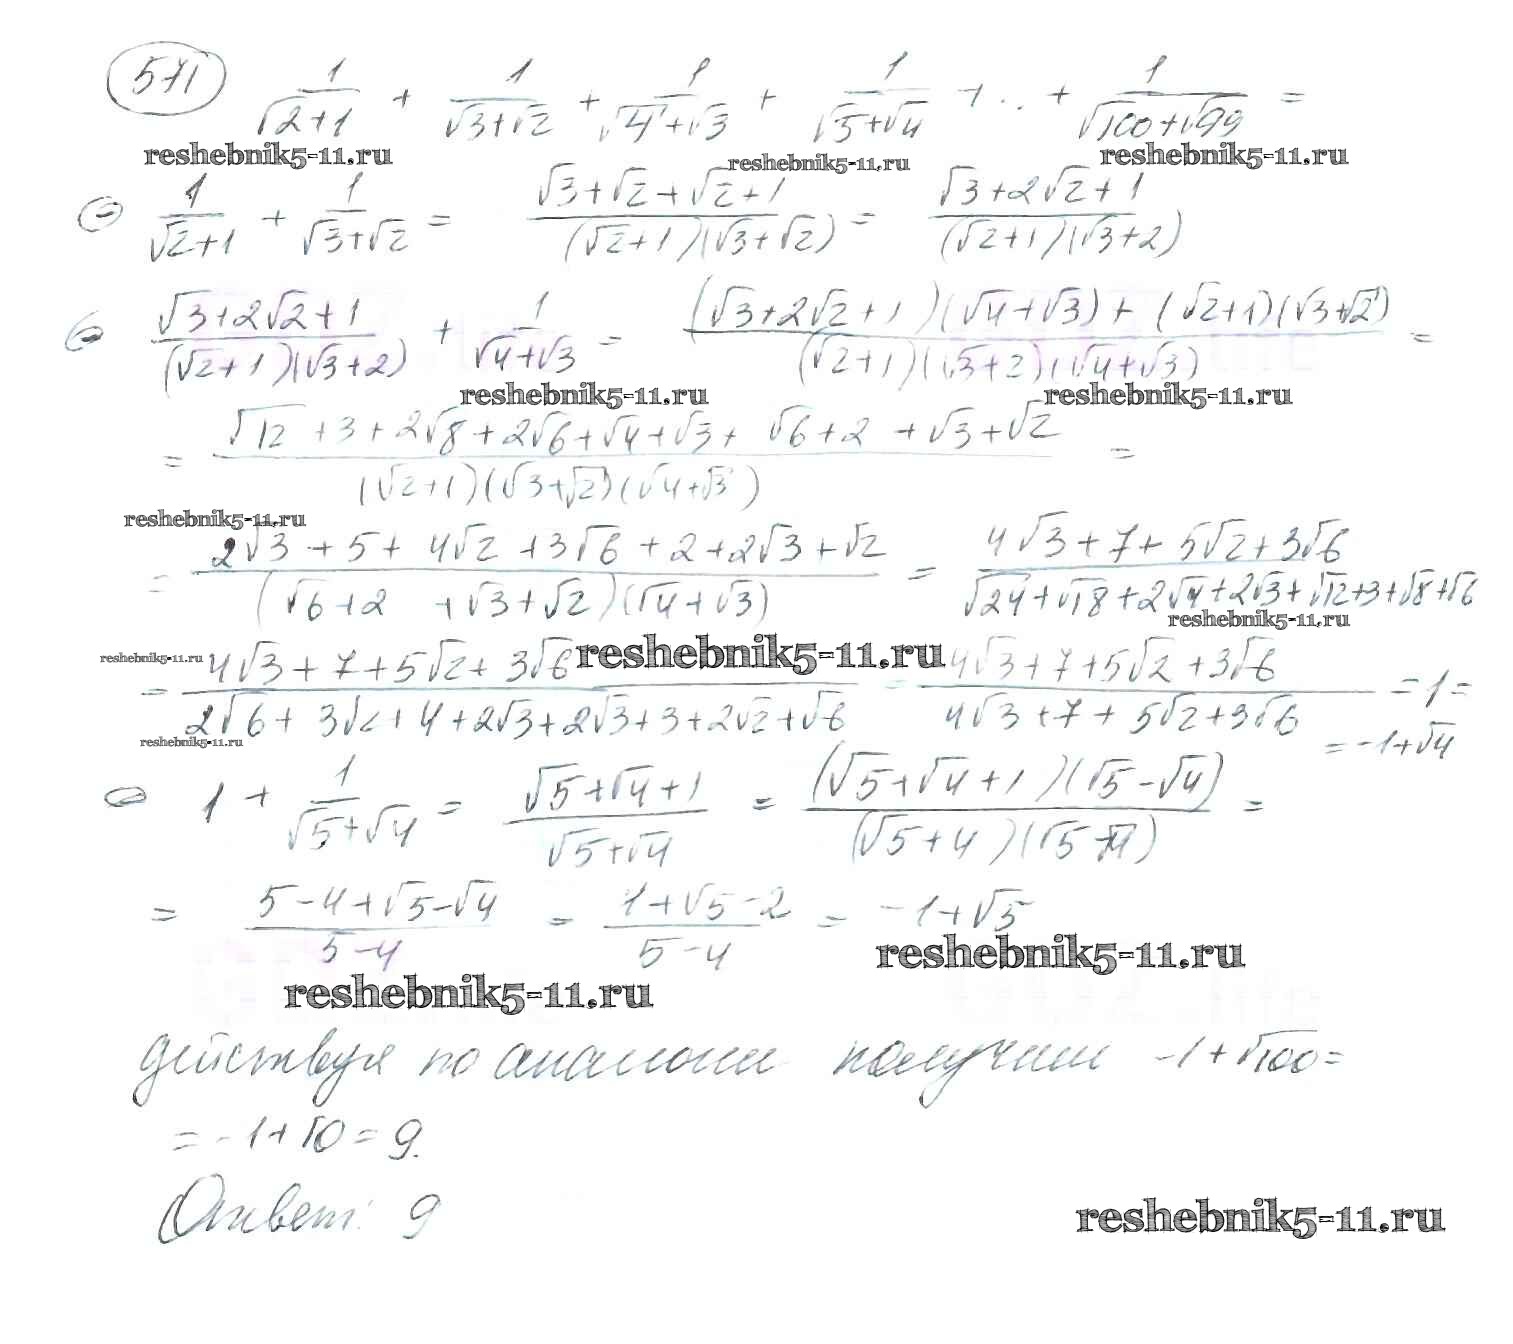 571 1/(√2+1) + 1/(√3+√2) + 1/(√4+√3) + 1/(√5+√4) + .. + 1/(√100+√99) =
reshebnik5-11.ru reshebnik5-11.ru reshebnik5-11.ru
1/(√2+1) + 1/(√3+√2) = (√3+√2+√2+1)/((√2+1)(√3+√2)) = (√3+2√2+1)/((√2+1)(√3+2))
(√3+2√2+1)/((√2+1)(√3+2)) + 1/(√4+√3) = ((√3+2√2+1)(√4+√3)+(√2+1)(√3+√2))/((√2+1)(√3+2)(√4+√3)) =
reshebnik5-11.ru reshebnik5-11.ru
= (√12+3+2√8+2√6+√4+√3+√6+2+√3+√2)/((√2+1)(√3+√2)(√4+√3)) =
reshebnik5-11.ru
= (2√3+5+4√2+3√6+2+2√3+√2)/((√6+2+√3+√2)(√4+√3)) = (4√3+7+5√2+3√6)/(√24+√18+2√4+2√3+√12+3+√8+√6)
reshebnik5-11.ru
reshebnik5-11.ru reshebnik5-11.ru
= (4√3+7+5√2+3√6)/(2√6+3√2+4+2√3+2√3+3+2√2+√6) = (4√3+7+5√2+3√6)/(4√3+7+5√2+3√6) = 1 =
reshebnik5-11.ru
= -1+√4
1 + 1/(√5+√4) = (√5+√4+1)/(√5+√4) = ((√5+√4+1)(√5-√4))/((√5+4)(√5-√4)) =
= (5-4+√5-√4)/(5-4) = (1+√5-2)/(5-4) = -1+√5
reshebnik5-11.ru
reshebnik5-11.ru
действуя по аналогии получим -1+√100=
= -1+10 = 9.
Ответ: 9
reshebnik5-11.ru